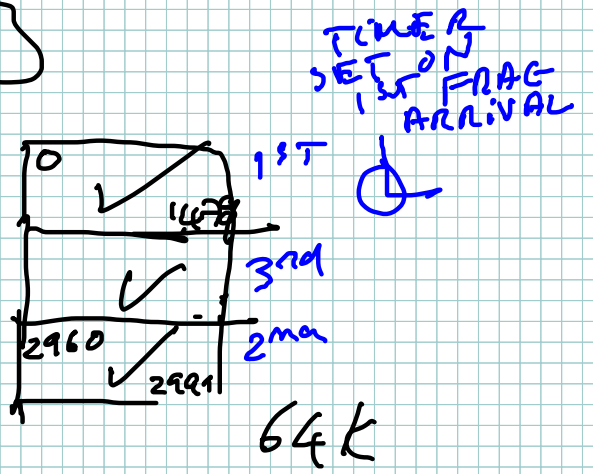 TIMER
SET ON
1ST FRAG
ARRIVAL
0
1ST
3rd
2960
2nd
64K